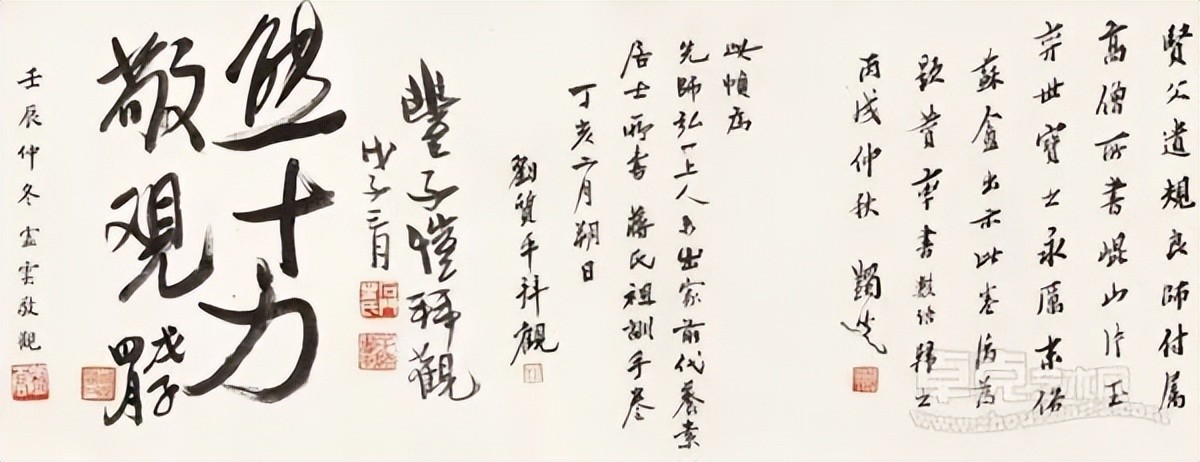 賢父遺規良師付屬
高僧所書崐山片玉
奔世寶之永厲末俗
蘇盦出示此卷屬為
題耑率書數語歸之
丙戌仲秋 蠲叟
此幀為
先師弘一上人未出家前代養素
居士所書蔣氏祖訓手卷
丁亥二月朔日
劉質平拜觀
豐子愷拜觀
戊子三月
熊十力
敬观 戊子
四月
壬辰仲冬虛雲敬觀
www.zhuokearts.com